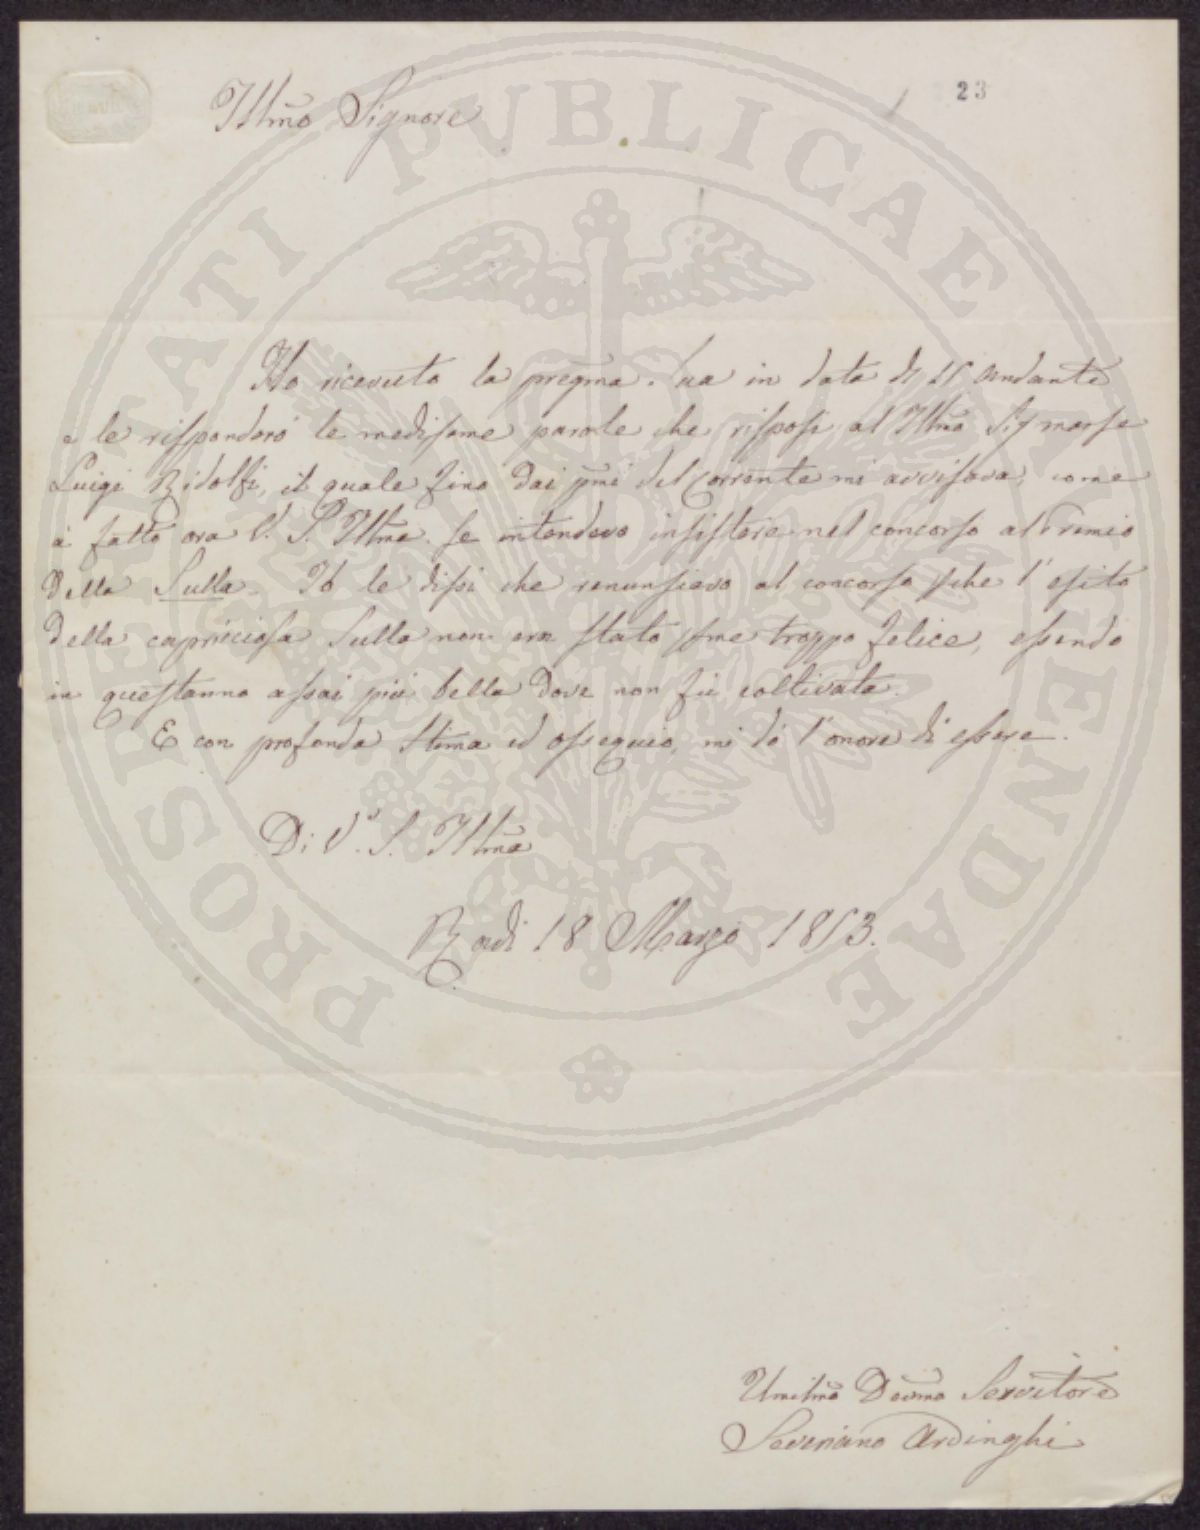 23
Illmo Signore
Ho ricevuto la pregma Sua in data di 15 andante
e le risponderò le medesime parole che risposi al Illmo Sig marse
Luigi Ridolfi, il quale fino dai pmi del Corrente mi avvisava, come
à fatto ora V. S. Illma se intendevo insistere nel concorso al Premio
della Sulla. Io le dissi che renunsievo al concorso che l'esito
della capricciosa Sulla non era stato troppo felice, essendo
in questanno assai più bella dove non fù coltivata.
E con profonda stima ed ossequio, mi dò l'onore di essere.
Di V. S. Illma
Radi 18 Marzo 1853.
Umilmo Devmo Servitore
Severiano Ardinghi
PROSPERITATI PUBLICAE AUGENDAE